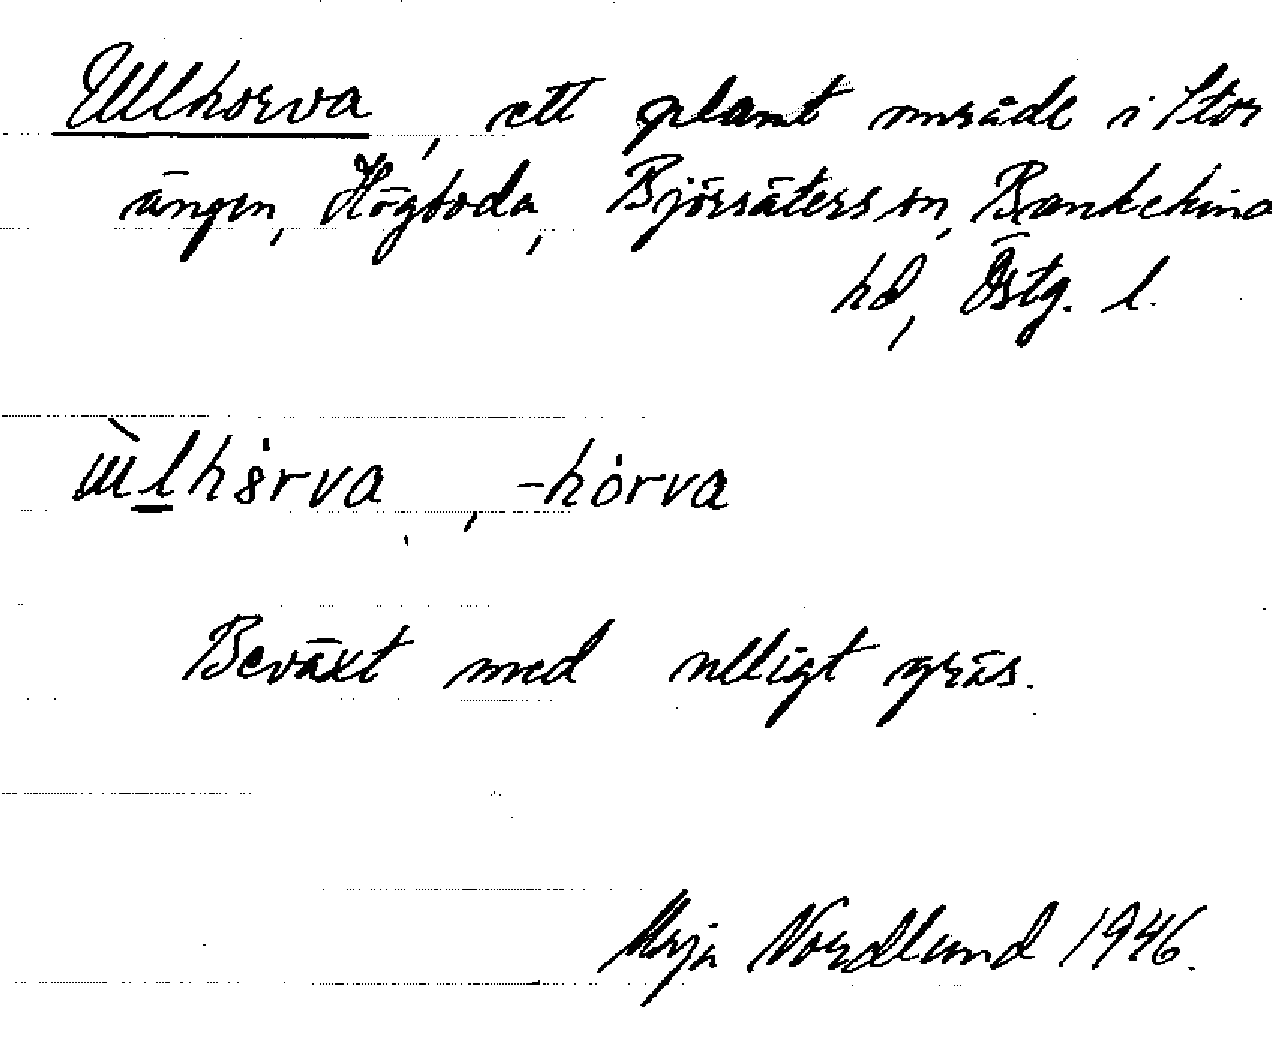 Ullhorva, ett plant område i Stor
ängen, Högboda, Björsäters sn, Bankekind
hd, Östg. l.
ùlhȯrva, -hȯrva
Beväxt med ulligt gräs.
Maja Nordlund 1946.